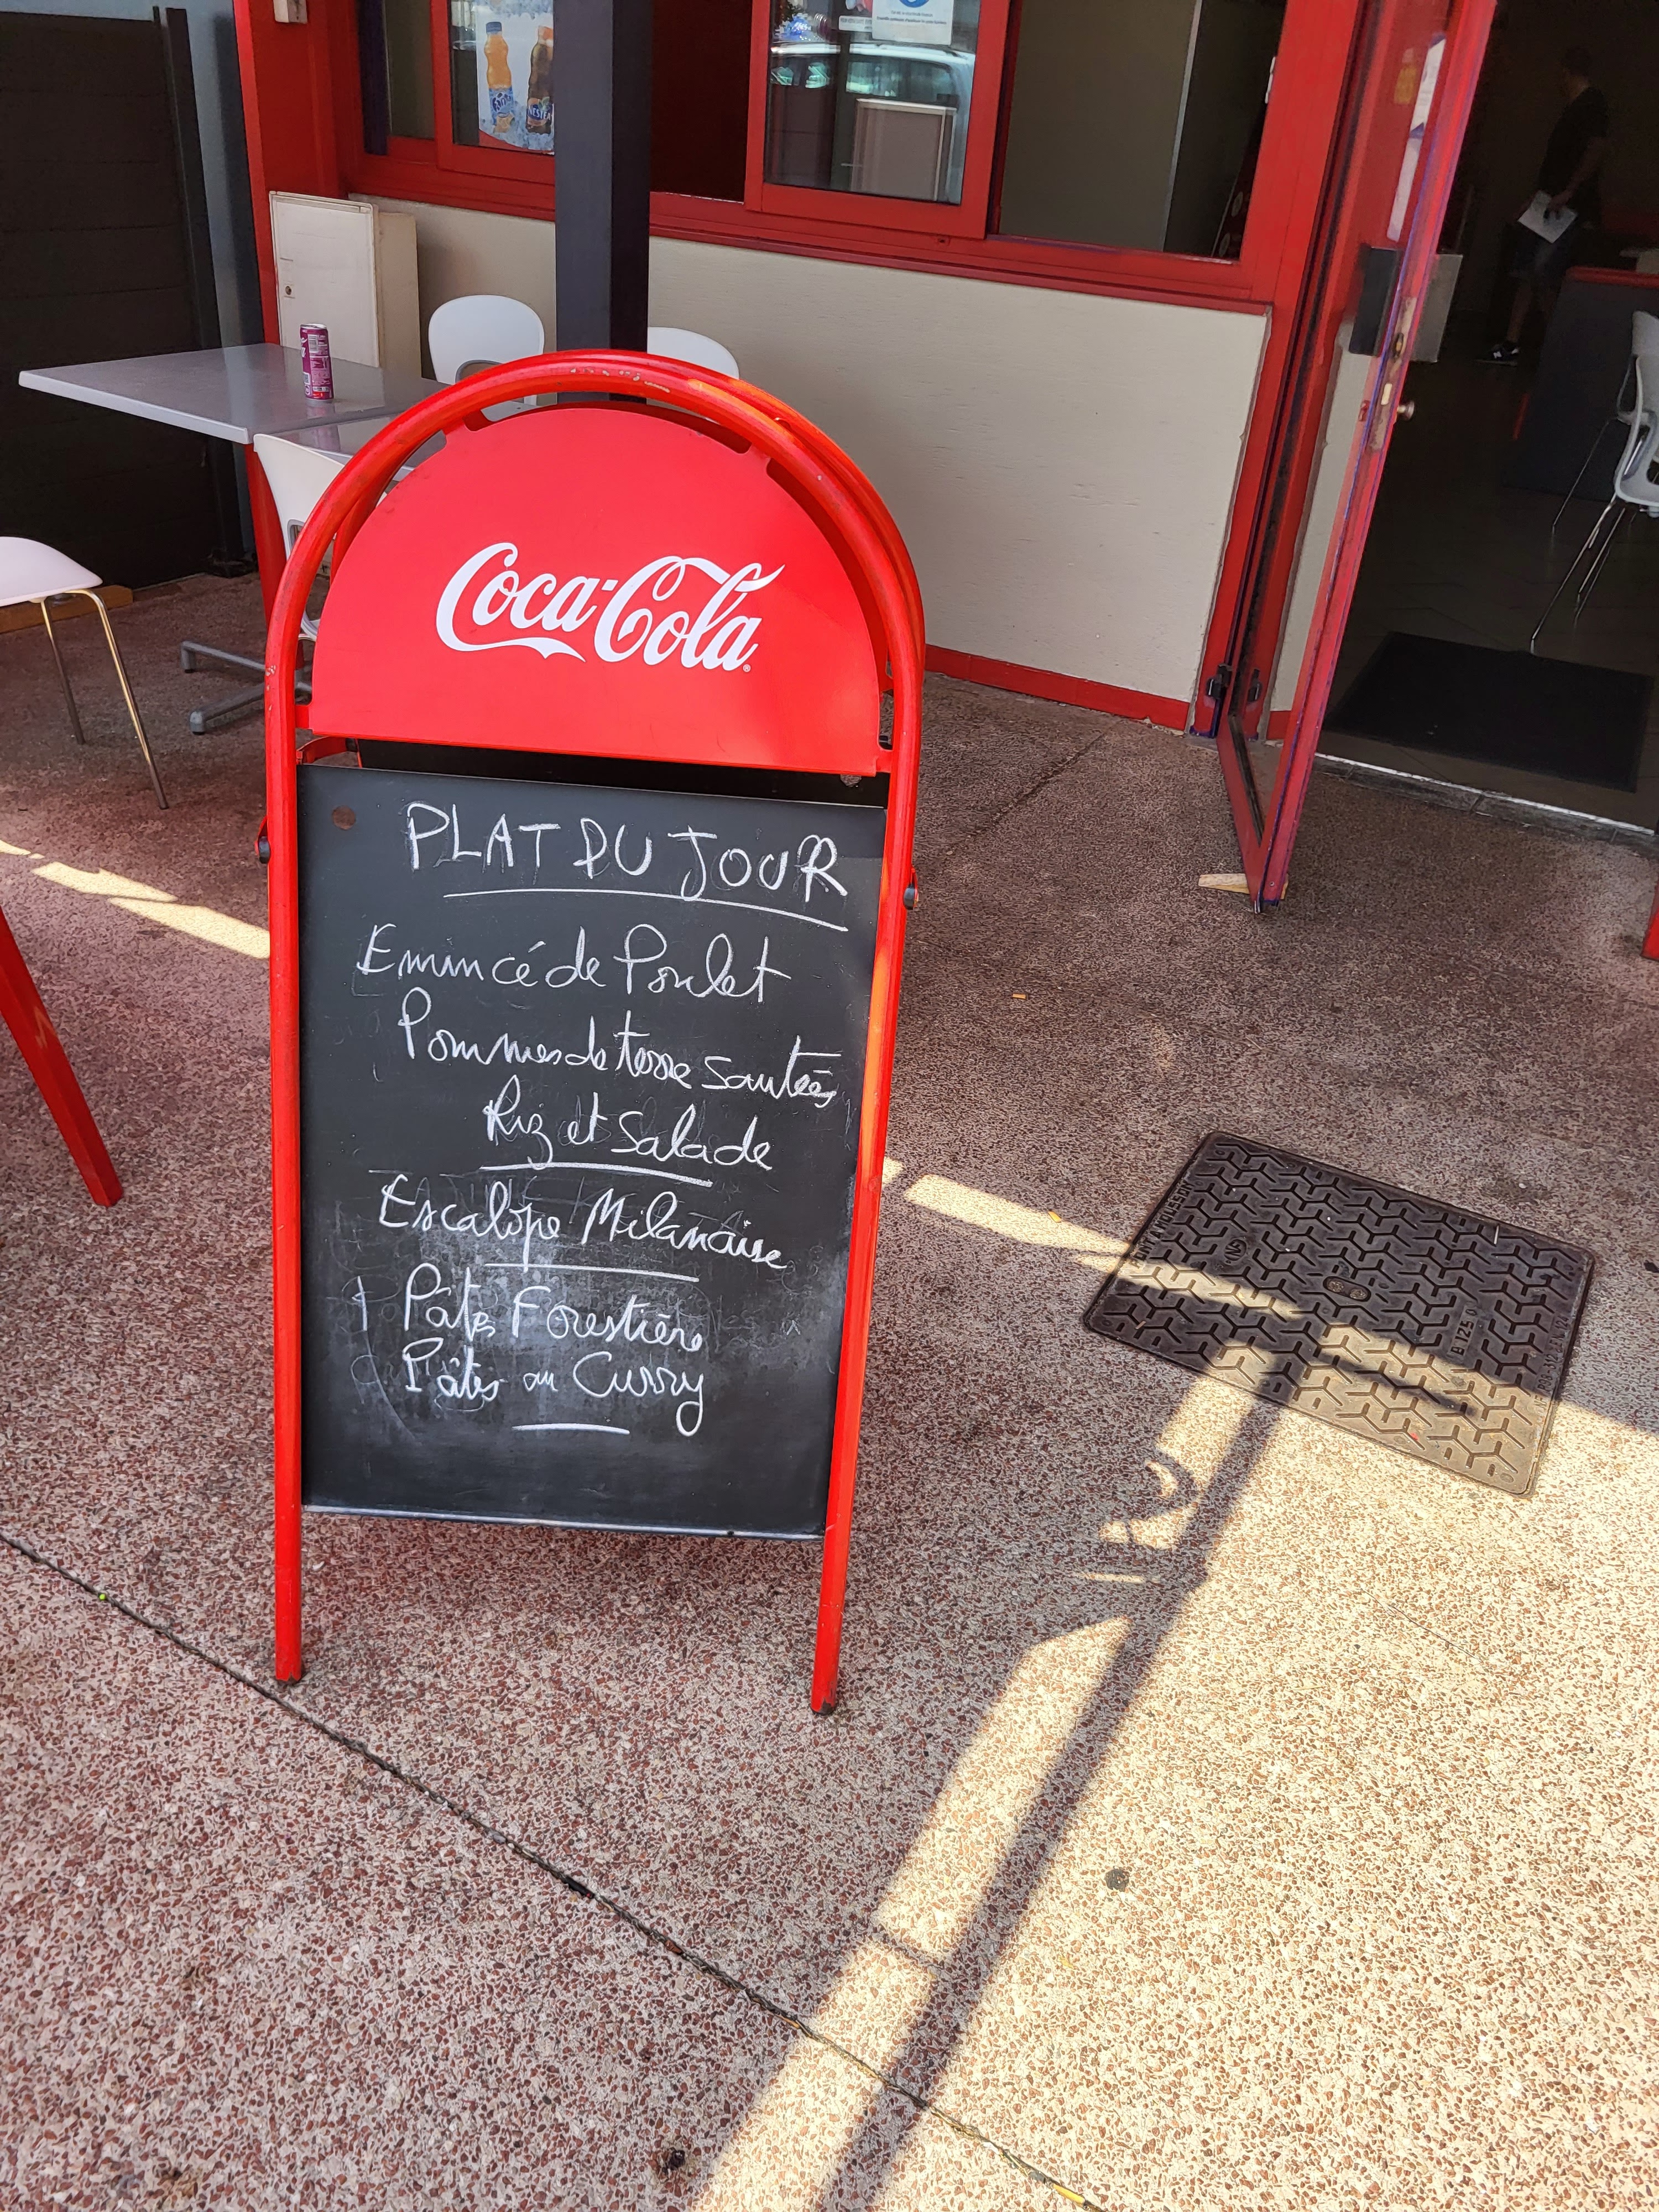 Coca-Cola
PLAT DU JOUR
Emincé de Poulet
Pommes de terre sautées
Riz et Salade
Escalope Milanaise
Pâtes Forestière
Pâtes au Curry
B 125